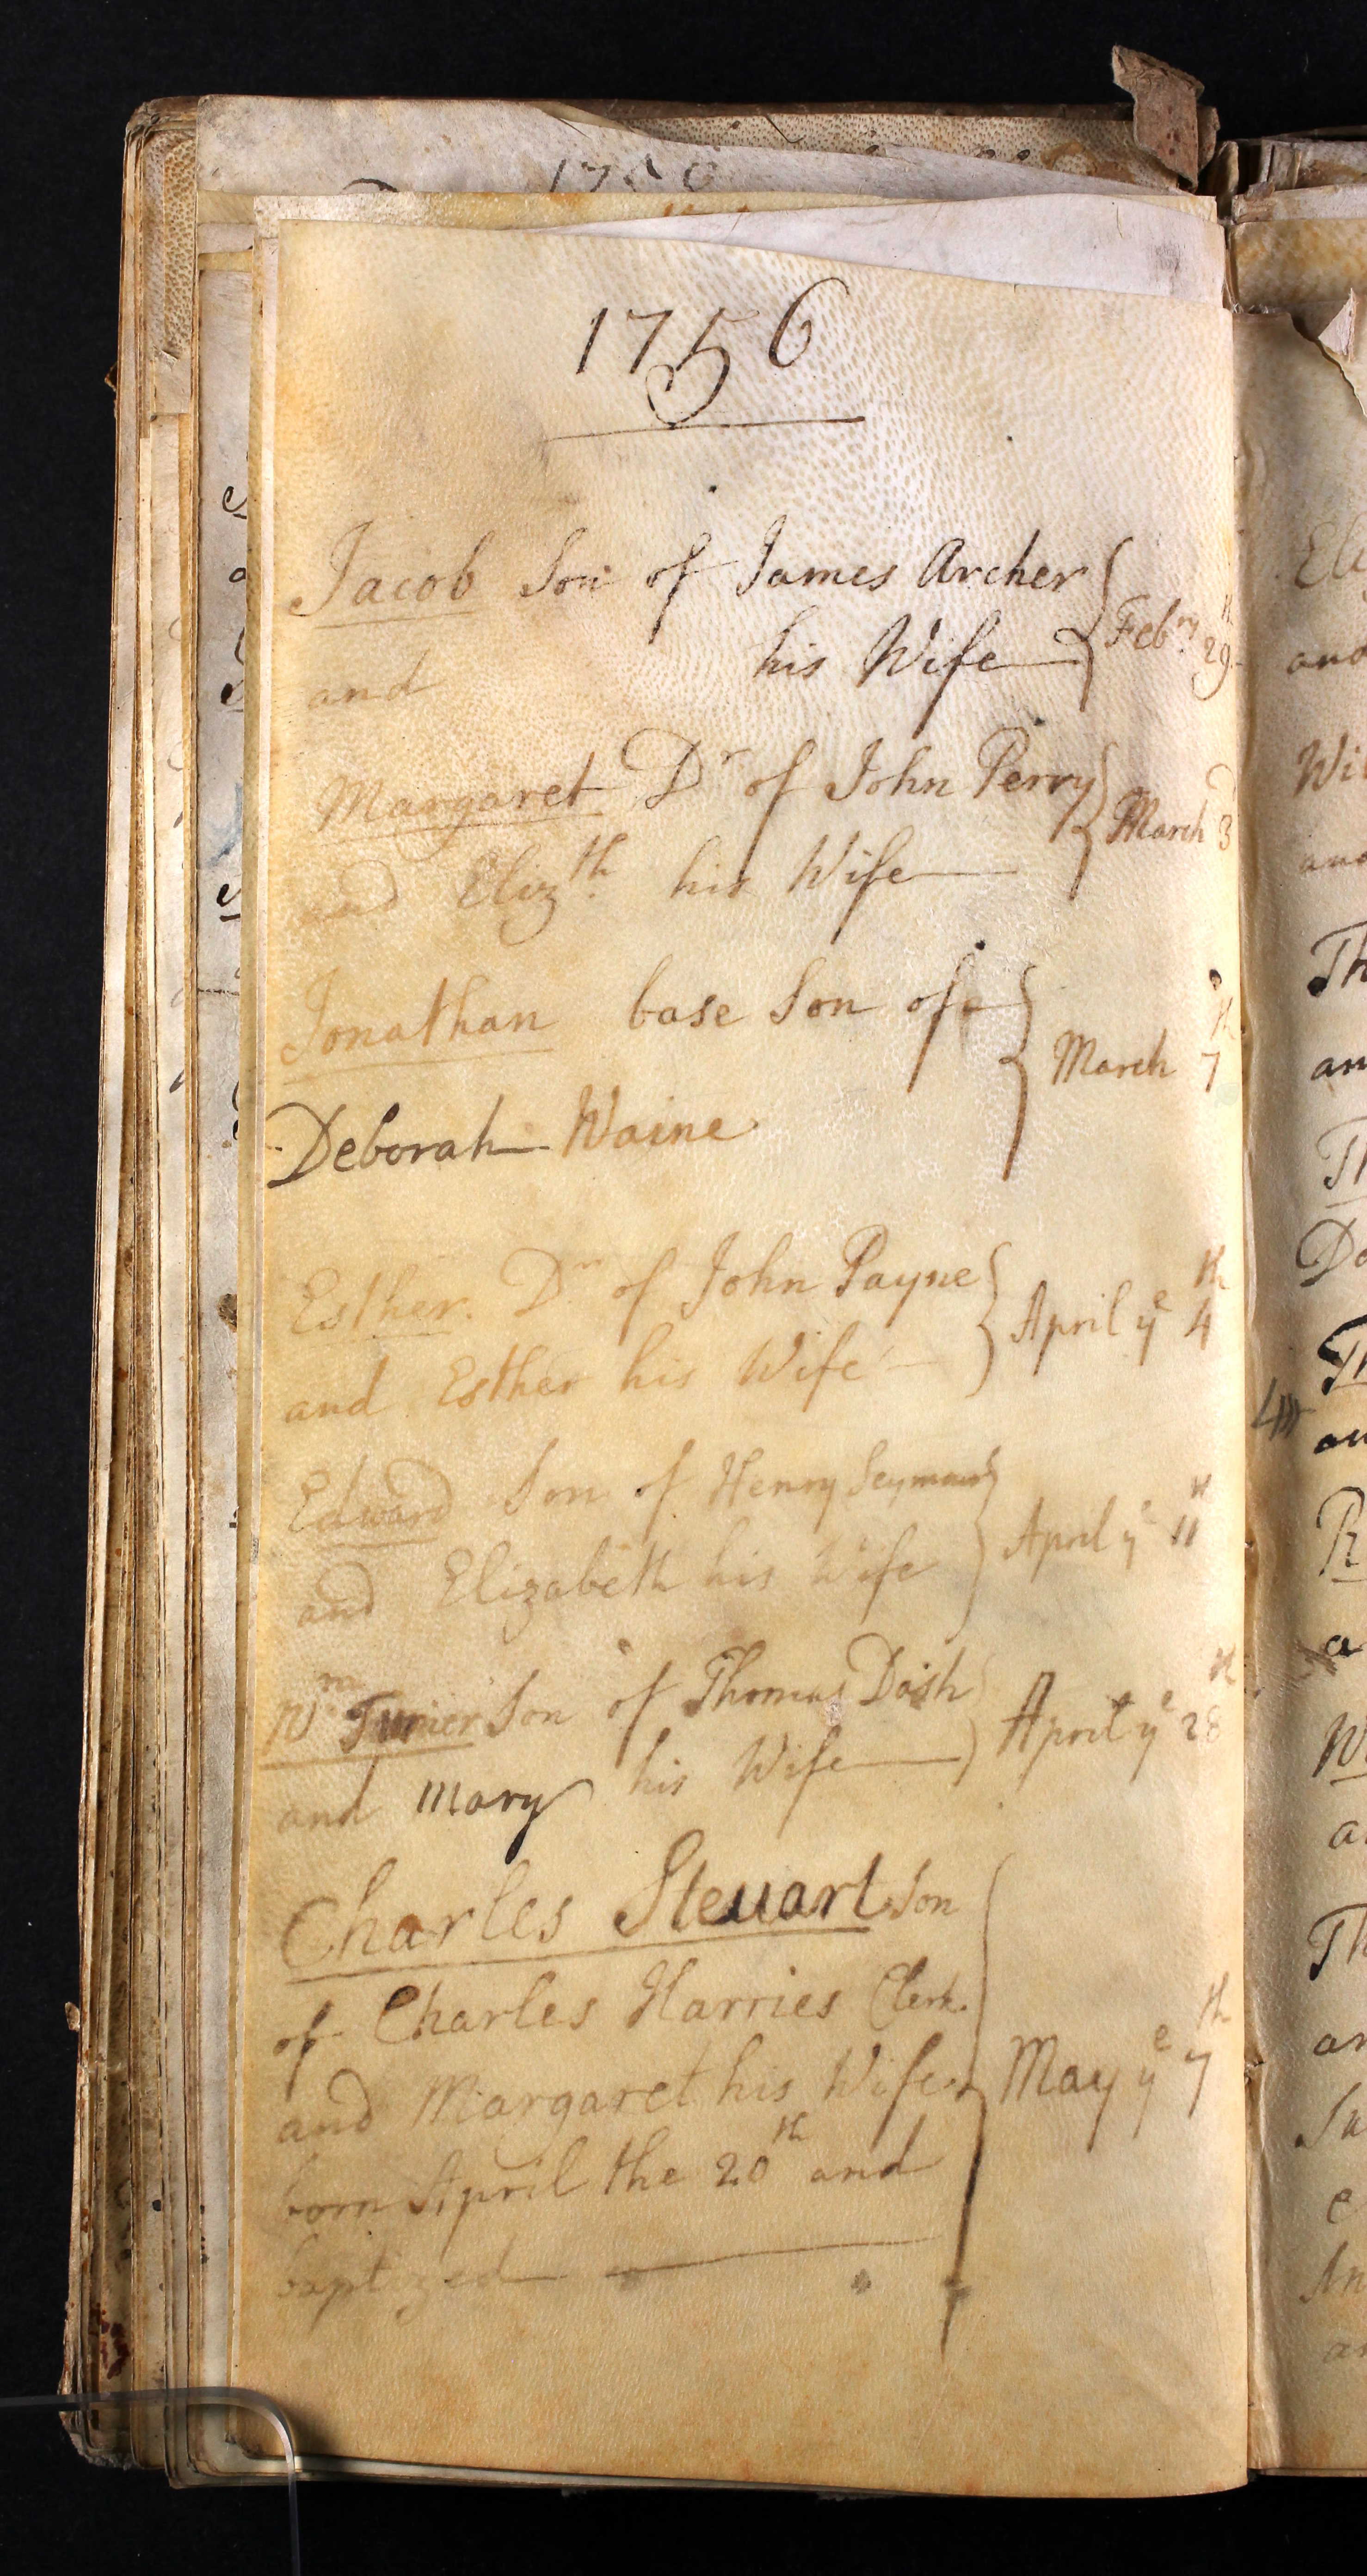 1756
Jacob Son of James Archer
and his Wife Feb.ry 29th
Margaret Dr of John Perry
and Eliz.th his Wife March 3d
Jonathan base Son of
Deborah Waine March 7th
Esther Dr of John Payne
and Esther his Wife April ye 4th
Edward Son of Henry Seymour
and Elizabeth his Wife April ye 11th
Wm Turner Son of Thomas Dash
and Mary his Wife April ye 28th
Charles Steuart Son
of Charles Harries Clerk.
and Margaret his Wife May ye 7th
born April the 20th and
baptized